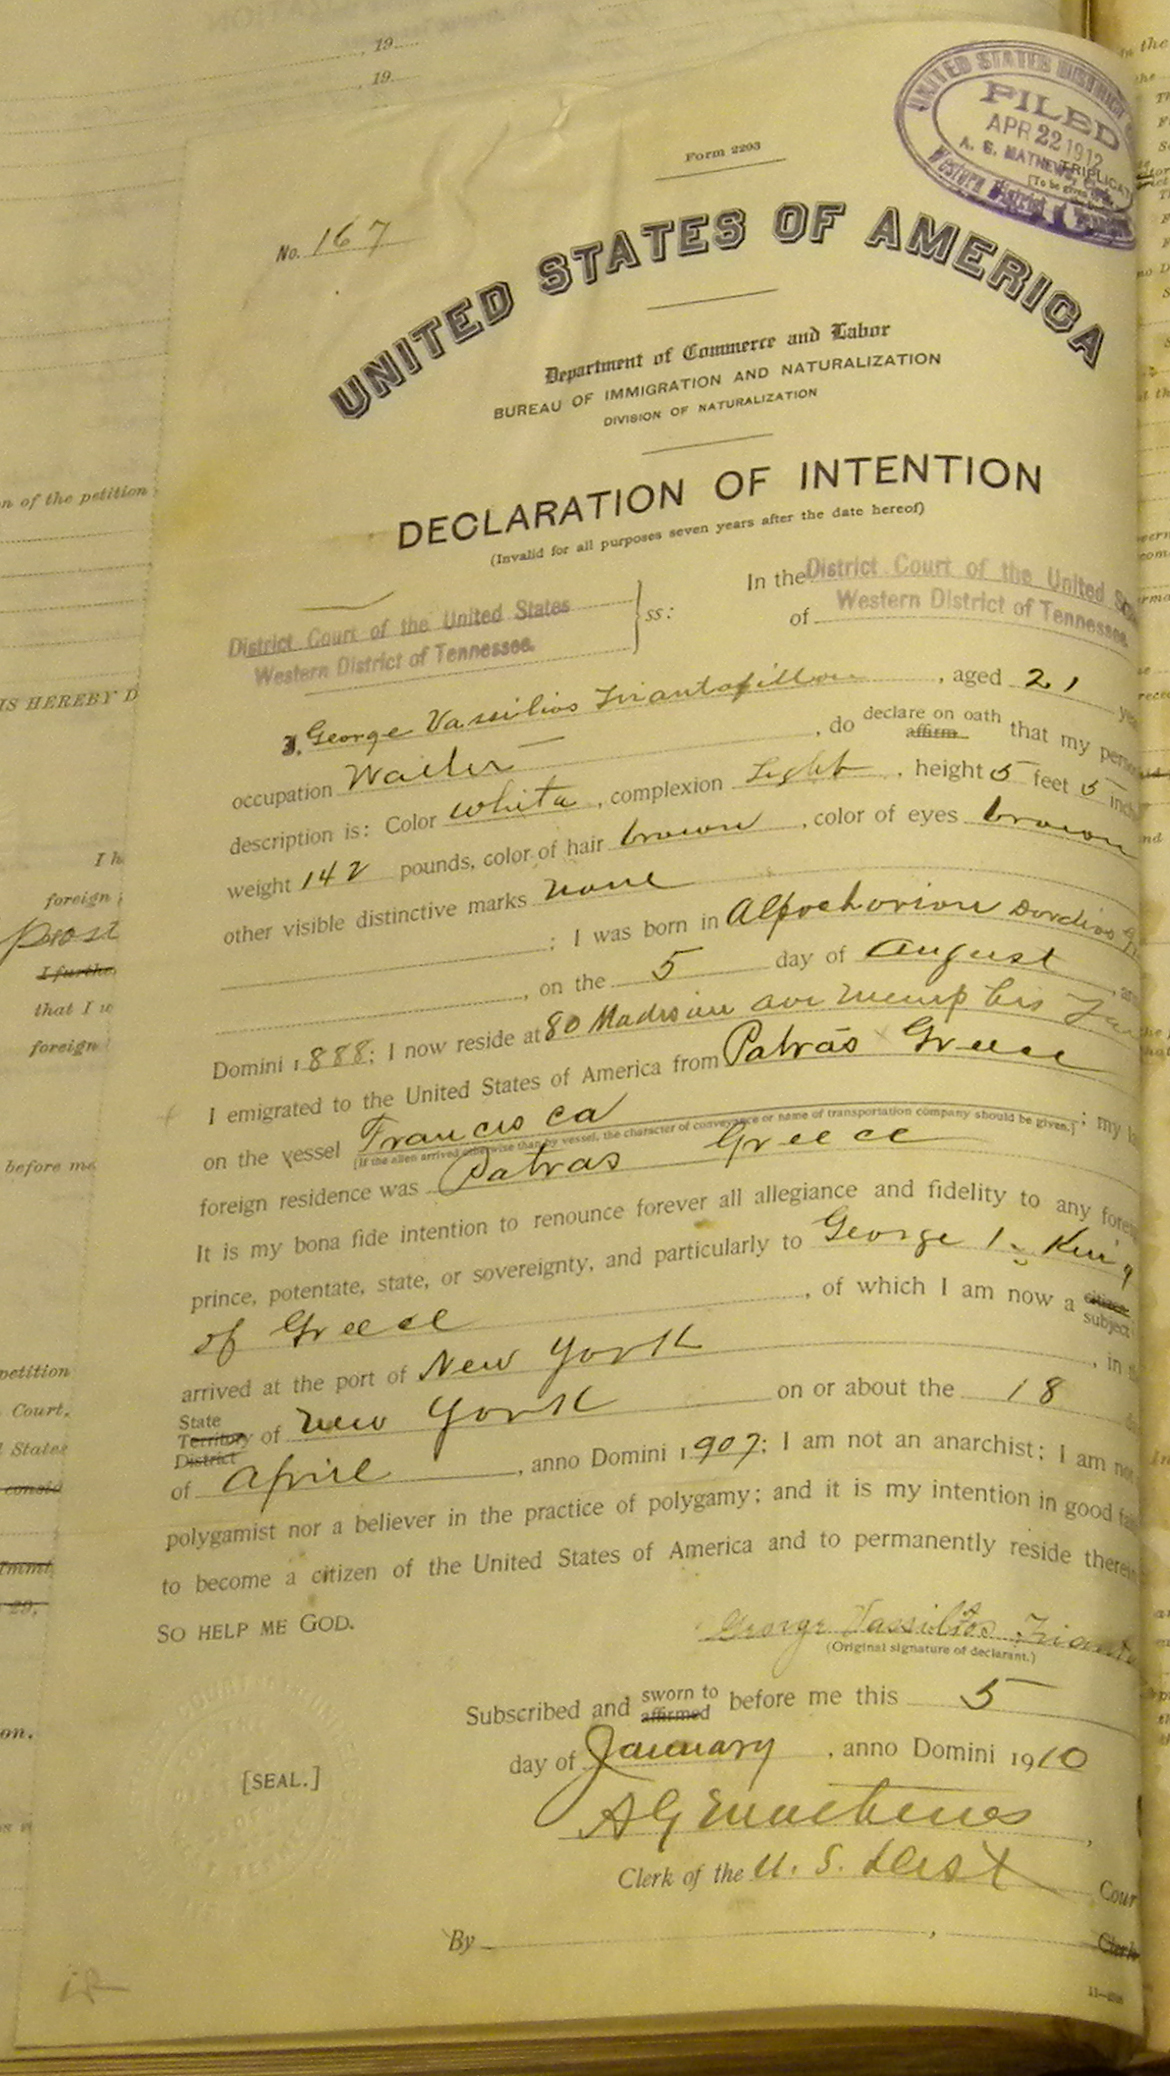 19
19
Form 2203
UNITED STATES DISTRICT
FILED
APR 22 1912
TRIPLICAT
[To be given
Western District
No. 167
UNITED STATES OF AMERICA
Department of Commerce and Labor
BUREAU OF IMMIGRATION AND NATURALIZATION
DIVISION OF NATURALIZATION
DECLARATION OF INTENTION
(Invalid for all purposes seven years after the date hereof)
District Court of the United States
Western District of Tennessee.
ss:
In the District Court of the United
of Western District of Tennessee.
I, George Vassilios Triantafillou, aged 21
occupation Waiter, do declare on oath affirm that my perso
description is: Color white, complexion Light, height 5 feet 5 inch
weight 142 pounds, color of hair brown, color of eyes brown
other visible distinctive marks none
; I was born in Alpochorion
, on the 5 day of August
Domini 1888; I now reside at 80 Madison ave Memphis
I emigrated to the United States of America from Patras Greece
on the vessel Francisca ; my
(If the alien arrived otherwise than by vessel, the character of conveyance or name of transportation company should be given.)
foreign residence was Patras Greece
It is my bona fide intention to renounce forever all allegiance and fidelity to any fore
prince, potentate, state, or sovereignty, and particularly to George 1. King
of Greece, of which I am now a citizen subject
arrived at the port of New York, in
State Territory District of New York on or about the 18
of April, anno Domini 1907; I am not an anarchist; I am not
polygamist nor a believer in the practice of polygamy; and it is my intention in good fa
to become a citizen of the United States of America and to permanently reside therein
SO HELP ME GOD.
George Vassilios
(Original signature of declarant.)
Subscribed and sworn to affirmed before me this 5
day of January, anno Domini 1910
[SEAL.]
Clerk of the U. S. Dist Cour
By , Clerk
on of the petition
IS HEREBY D
foreign
I furthe
that I
foreign
before me
petition
Court.
States
on.